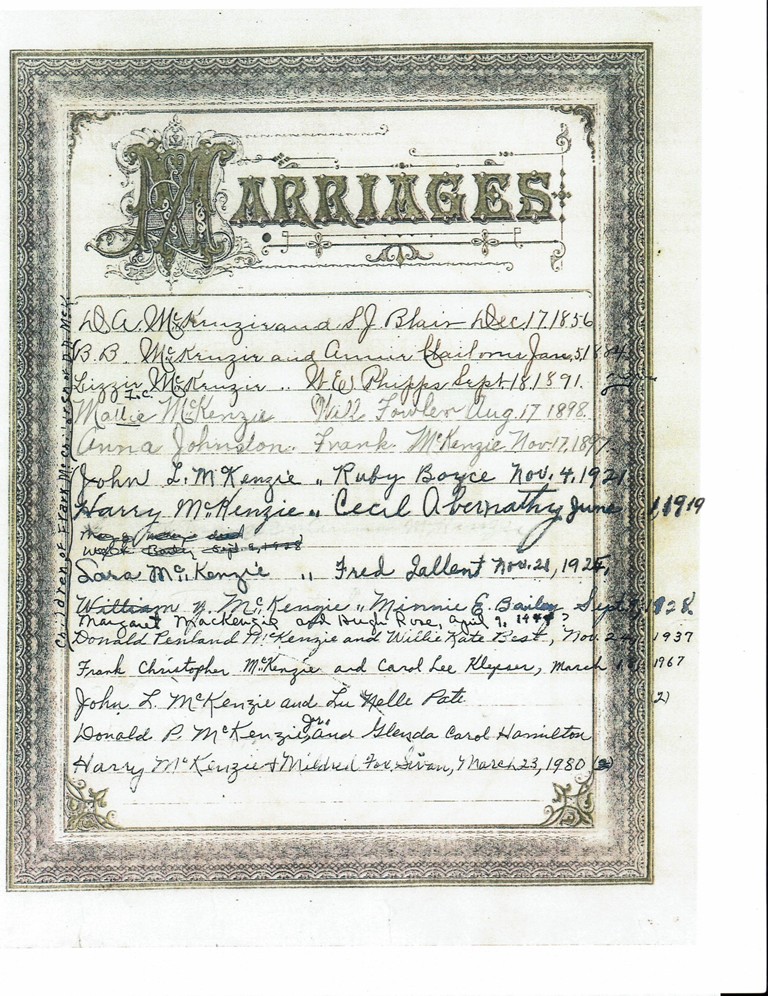 MARRIAGES
D. A. McKenzie and S. J. Blair Dec. 17, 1856
B. B. McKenzie and Annie Claiborne Jan. 5, 1884
Lizzie McKenzie " W. E. Phipps Sept 18 1891.
L.C.
Mallie McKenzie Will Fowler Aug. 17 1898.
Anna Johnston. Frank McKenzie Nov. 17, 1897
John L. McKenzie " Ruby Boyce Nov. 4, 1921
Harry McKenzie " Cecil Abernathy June 1, 1919
Sara McKenzie " Fred Tallent Nov. 21, 1925,
William Y. McKenzie " Minnie E. Bailey Sept 8, 1928.
Margaret MacKenzie and Hugh Rose, April 9, 1944?
Donald Penland McKenzie and Willie Kate Best, Nov. 24, 1937
Frank Christopher McKenzie and Carol Lee Klyeser, March 18, 1967
John L. McKenzie and Lu Nelle Pate (2)
Donald P. McKenzie, Jr. and Glenda Carol Hamilton
Harry McKenzie & Mildred Fox Swan, March 23, 1980 (2)
Children of Frank McK.